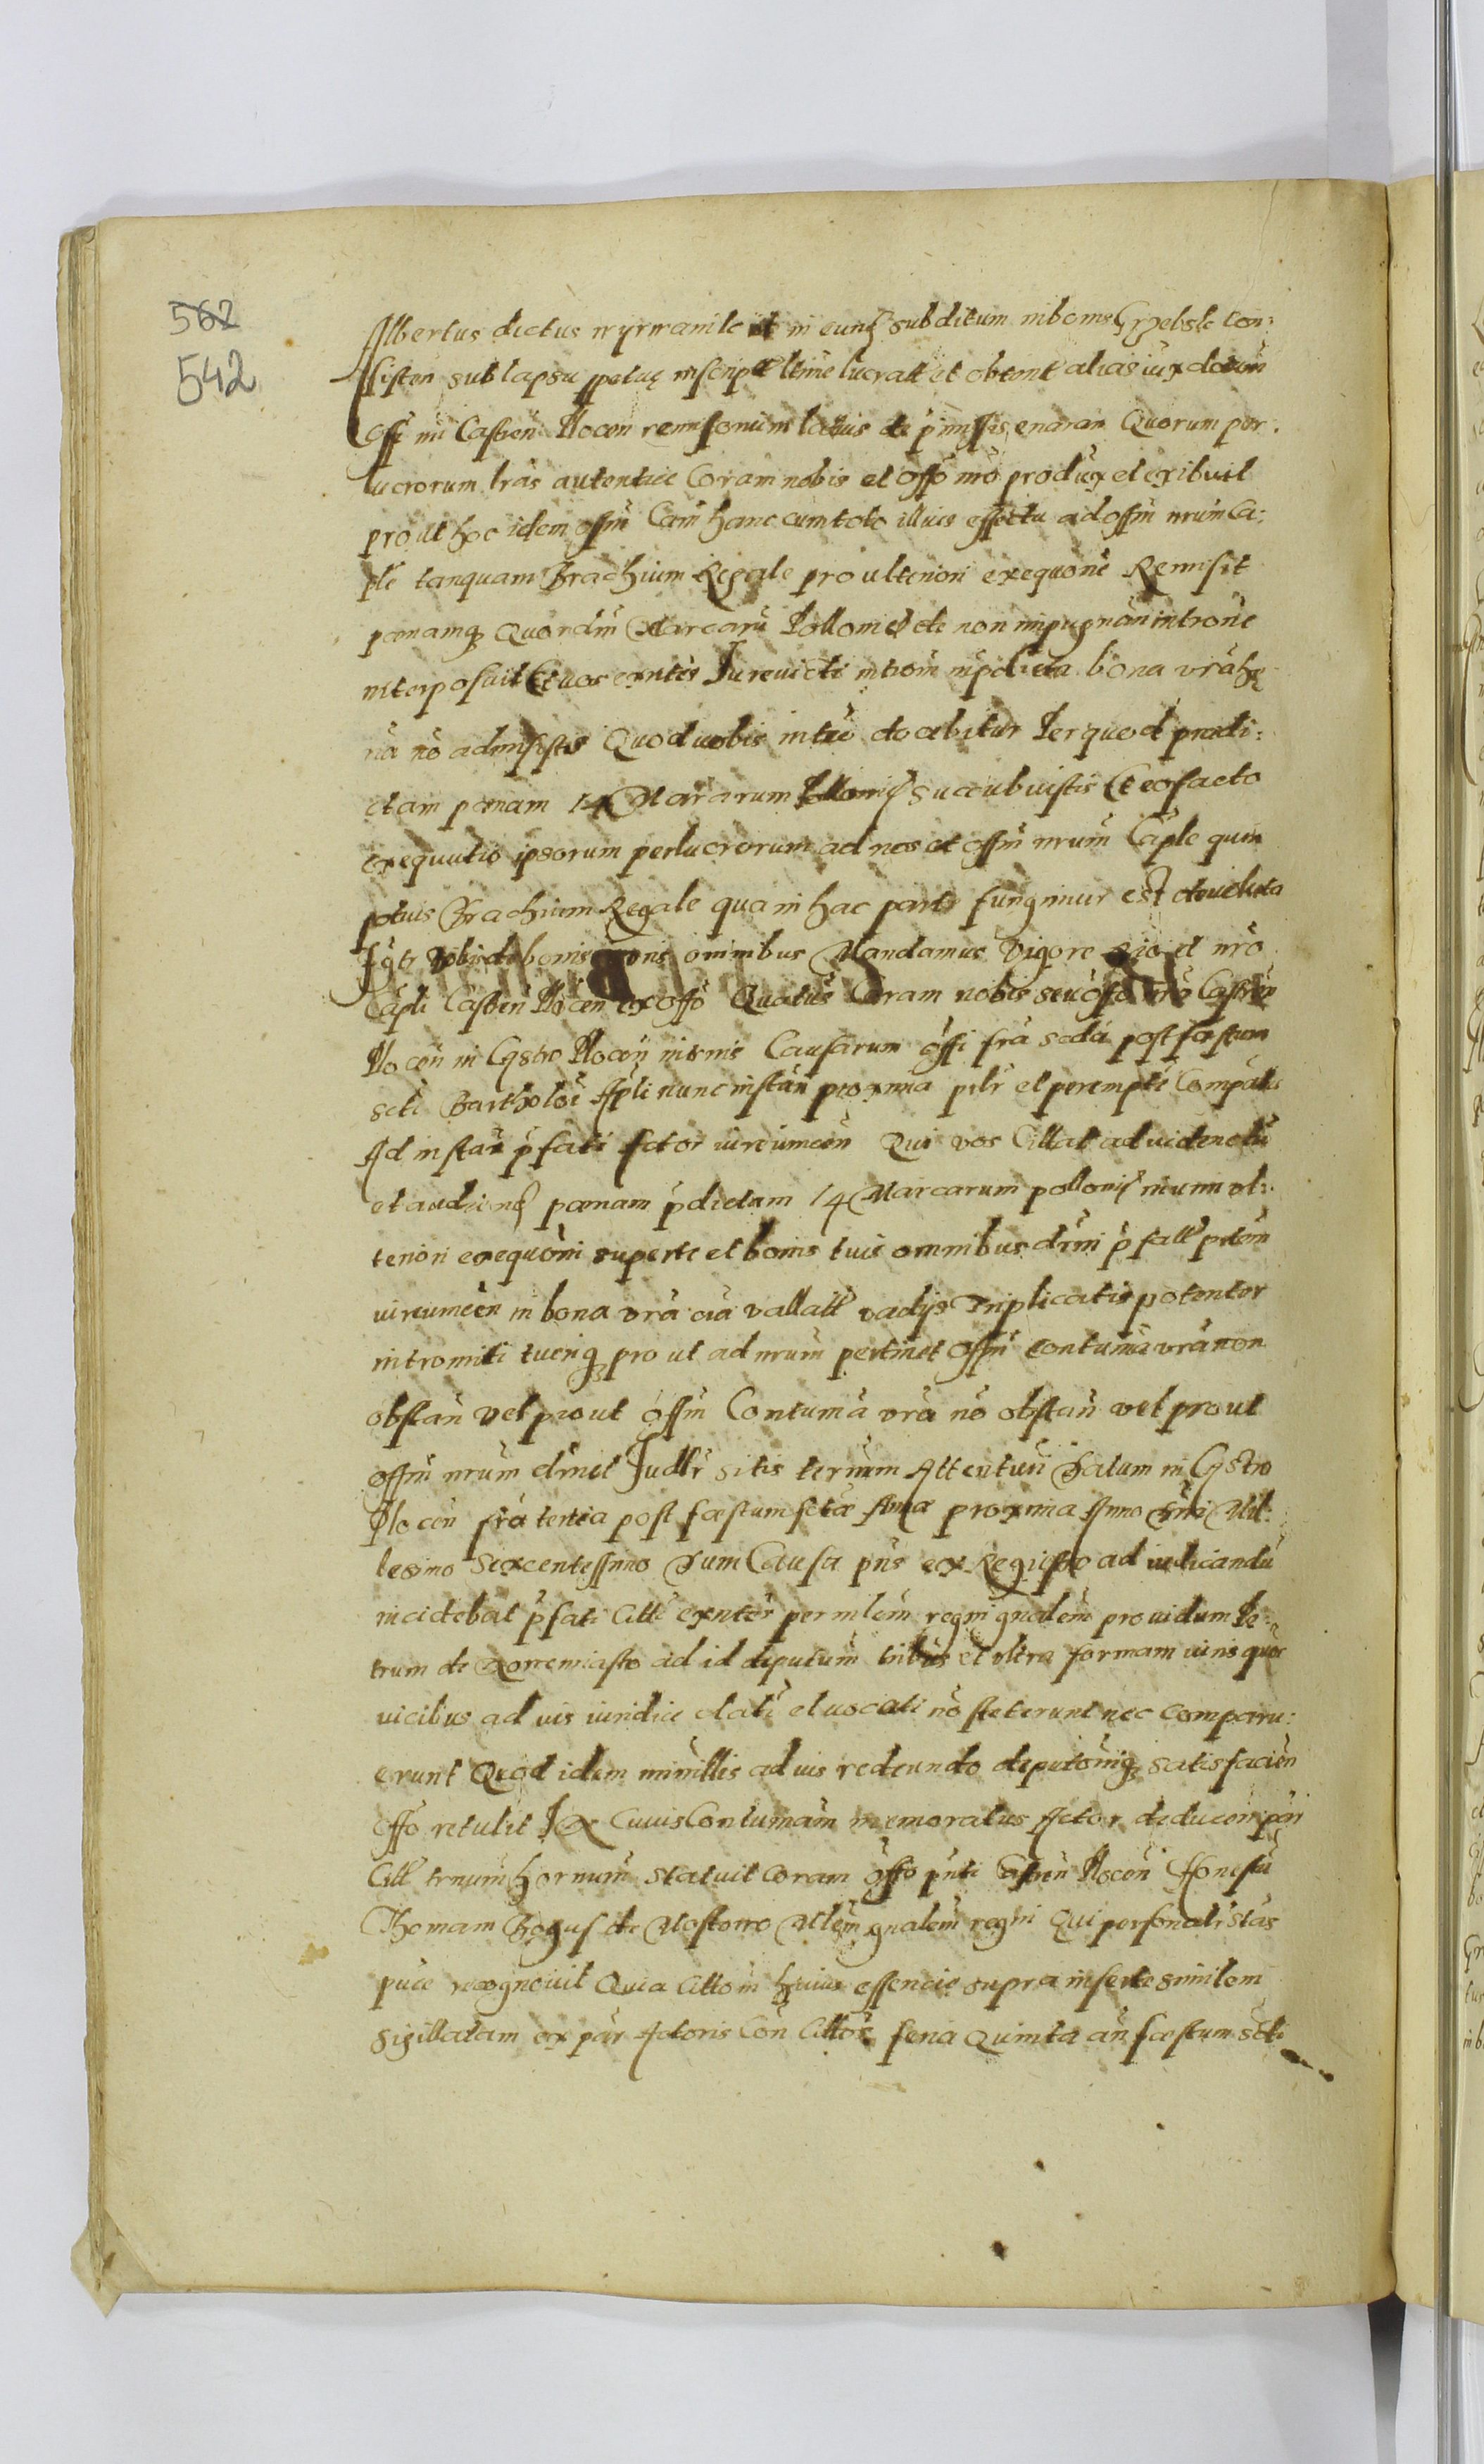 562
542
Albertus dictus wyrwanilc et in eund subditum in bonis Grzebsk con:
sisten sub lapsu ppetuę inscrip ltime lucratt et obtent alias iuxdotun
Offi nri Castren Plocen remissonum latius de pmissis enaran Quorum per:
lucrorum lras autentice Coram nobis et offo nro produx et exibuit
pro ut hoc idem offm Cam hanc cum toto illius effectu ad offm nrum Ca:
ple tanquam Brachium Regale pro ulteriori exequone Remisit
pœnamq Quordm Marcaru Pollonic de non impugnan introne
interposuit Et vos exntes Jurevicti introm in pdicta bona vra he
na no admisistis Quod uobis in tro docebitur Per quod predi:
ctam pœnam 14 Marcarum Pollonic succubuistis Et eo facto
exequutio ipsorum perlucrorum ad nos et offm nrum Caple quin
potius Brachium Regale qua in hac parte fungimur est deuoluta
Igtr Vobis de bonis vris omnibus Mandamus Vigore offo et nro
Capli Castren Plocen ex offo Quatus Coram nobis seu offo nro Castren
Plocen in Castro Plocen in tmis Causarum offi fra scda post festum
scti Bartholoi Apli nunc instan proxima pilr et perempte Compatis
Ad instan pfati Actor uireumcen Qui vos Cittat ad uidendu
et audiend pœnam pdictam 14 Marcarum pollonic
teriori exequoni super te et bonis tuis omnibus drni pfatt ptom
uireumcen in bona vra oia vallatt vadijs Triplicatis potenter
intromitti tuenq pro ut ad nrum pertinet Offm contuma vra non
obstan vel prout offm Contuma vra no obstan vel prout
offm nrum drnet Judlr sitis termm Attenturi Datum in Castro
Plocen fra tertia post festum sctæ Annæ proxima Anno Dni Mil:
lesimo Sexcentessimo Dum Causa pns ex Registro ad iudicandu
incidebat pfati Citti exntes per mlem regni gnalem prouidum Pe:
trum de Zoremiasto ad id deputum tribus et ultra formam iuris quor
vicibus ad ius iuridice clati et uocati no steterunt nec comparu:
erunt Quod idem minillis ad ius redeundo deputoniq satisfacien
offo retulit In Cuius Contumam memoratus Actor deducen pari
Citt trnum hornum statuit Coram offo pnti Castren Plocen Honestu
Thomam Bogus de Mostowo Mlem gnalem regni Qui personalr stas
puce recognouit Quia Cittom huius essencie supra inserte similem
sigillatam ex par Actoris Con Cittos feria Quinta an festum Scti